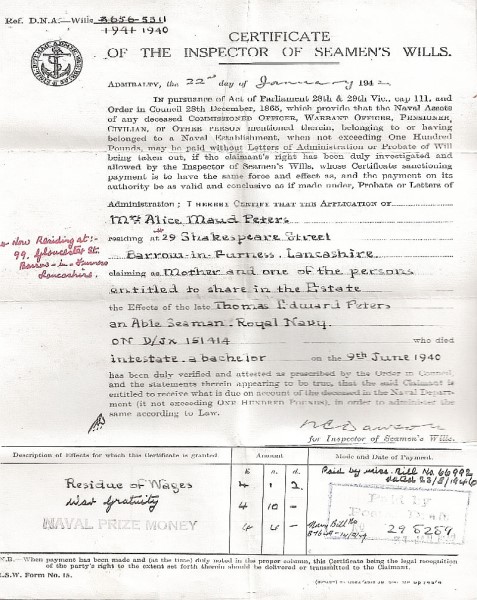 Ref. D.N.A.—Wills 3656-5311
1941 1940
CERTIFICATE
OF THE INSPECTOR OF SEAMEN'S WILLS.
ADMIRALTY, the 22nd day of January 1942
IN pursuance of Act of Parliament 28th & 29th Vic., cap 111, and
Order in Council 28th December, 1865, which provide that the Naval Assets
of any deceased COMMISSIONED OFFICER, WARRANT OFFICER, PENSIONER,
CIVILIAN, or OTHER PERSON mentioned therein, belonging to or having
belonged to a Naval Establishment, when not exceeding One Hundred
Pounds, may be paid without Letters of Administration or Probate of Will
being taken out, if the claimant's right has been duly investigated and
allowed by the Inspector of Seamen's Wills, whose Certificate sanctioning
payment is to have the same force and effect as, and the payment on its
authority be as valid and conclusive as if made under, Probate or Letters of
Administration; I HEREBY CERTIFY THAT THE APPLICATION OF
Mrs Alice Maud Peters
residing at 29 Shakespeare Street
Barrow-in-Furness. Lancashire.
Now Residing at:-
99, Gloucester St.
Barrow-in-Furness
Lancashire.
claiming as Mother and one of the persons
entitled to share in the Estate
the Effects of the late Thomas Edward Peters
an Able Seaman. Royal Navy.
ON D/JX 151414 who died
intestate. a bachelor on the 9th June 1940
has been duly verified and attested as prescribed by the Order in Council,
and the statements therein appearing to be true, that the said Claimant is
entitled to receive what is due on account of the deceased in the Naval Depart-
ment (it not exceeding ONE HUNDRED POUNDS), in order to administer the
same according to Law.
for Inspector of Seamen's Wills.
Description of Effects for which this Certificate is granted Amount Mode and Date of Payment.
£ s. d.
Residue of Wages 4 1 2.
War Gratuity 4 10 -
NAVAL PRIZE MONEY 4 4 -
Paid by Bill No 66992
dated 23/8/1946
Navy Bill No
296289
N.B.—When payment has been made and (at the time) duly noted in the proper column, this Certificate being the legal recognition
of the party's right to the extent set forth therein should be delivered or transmitted to the Claimant.
I.S.W. Form No. 15.